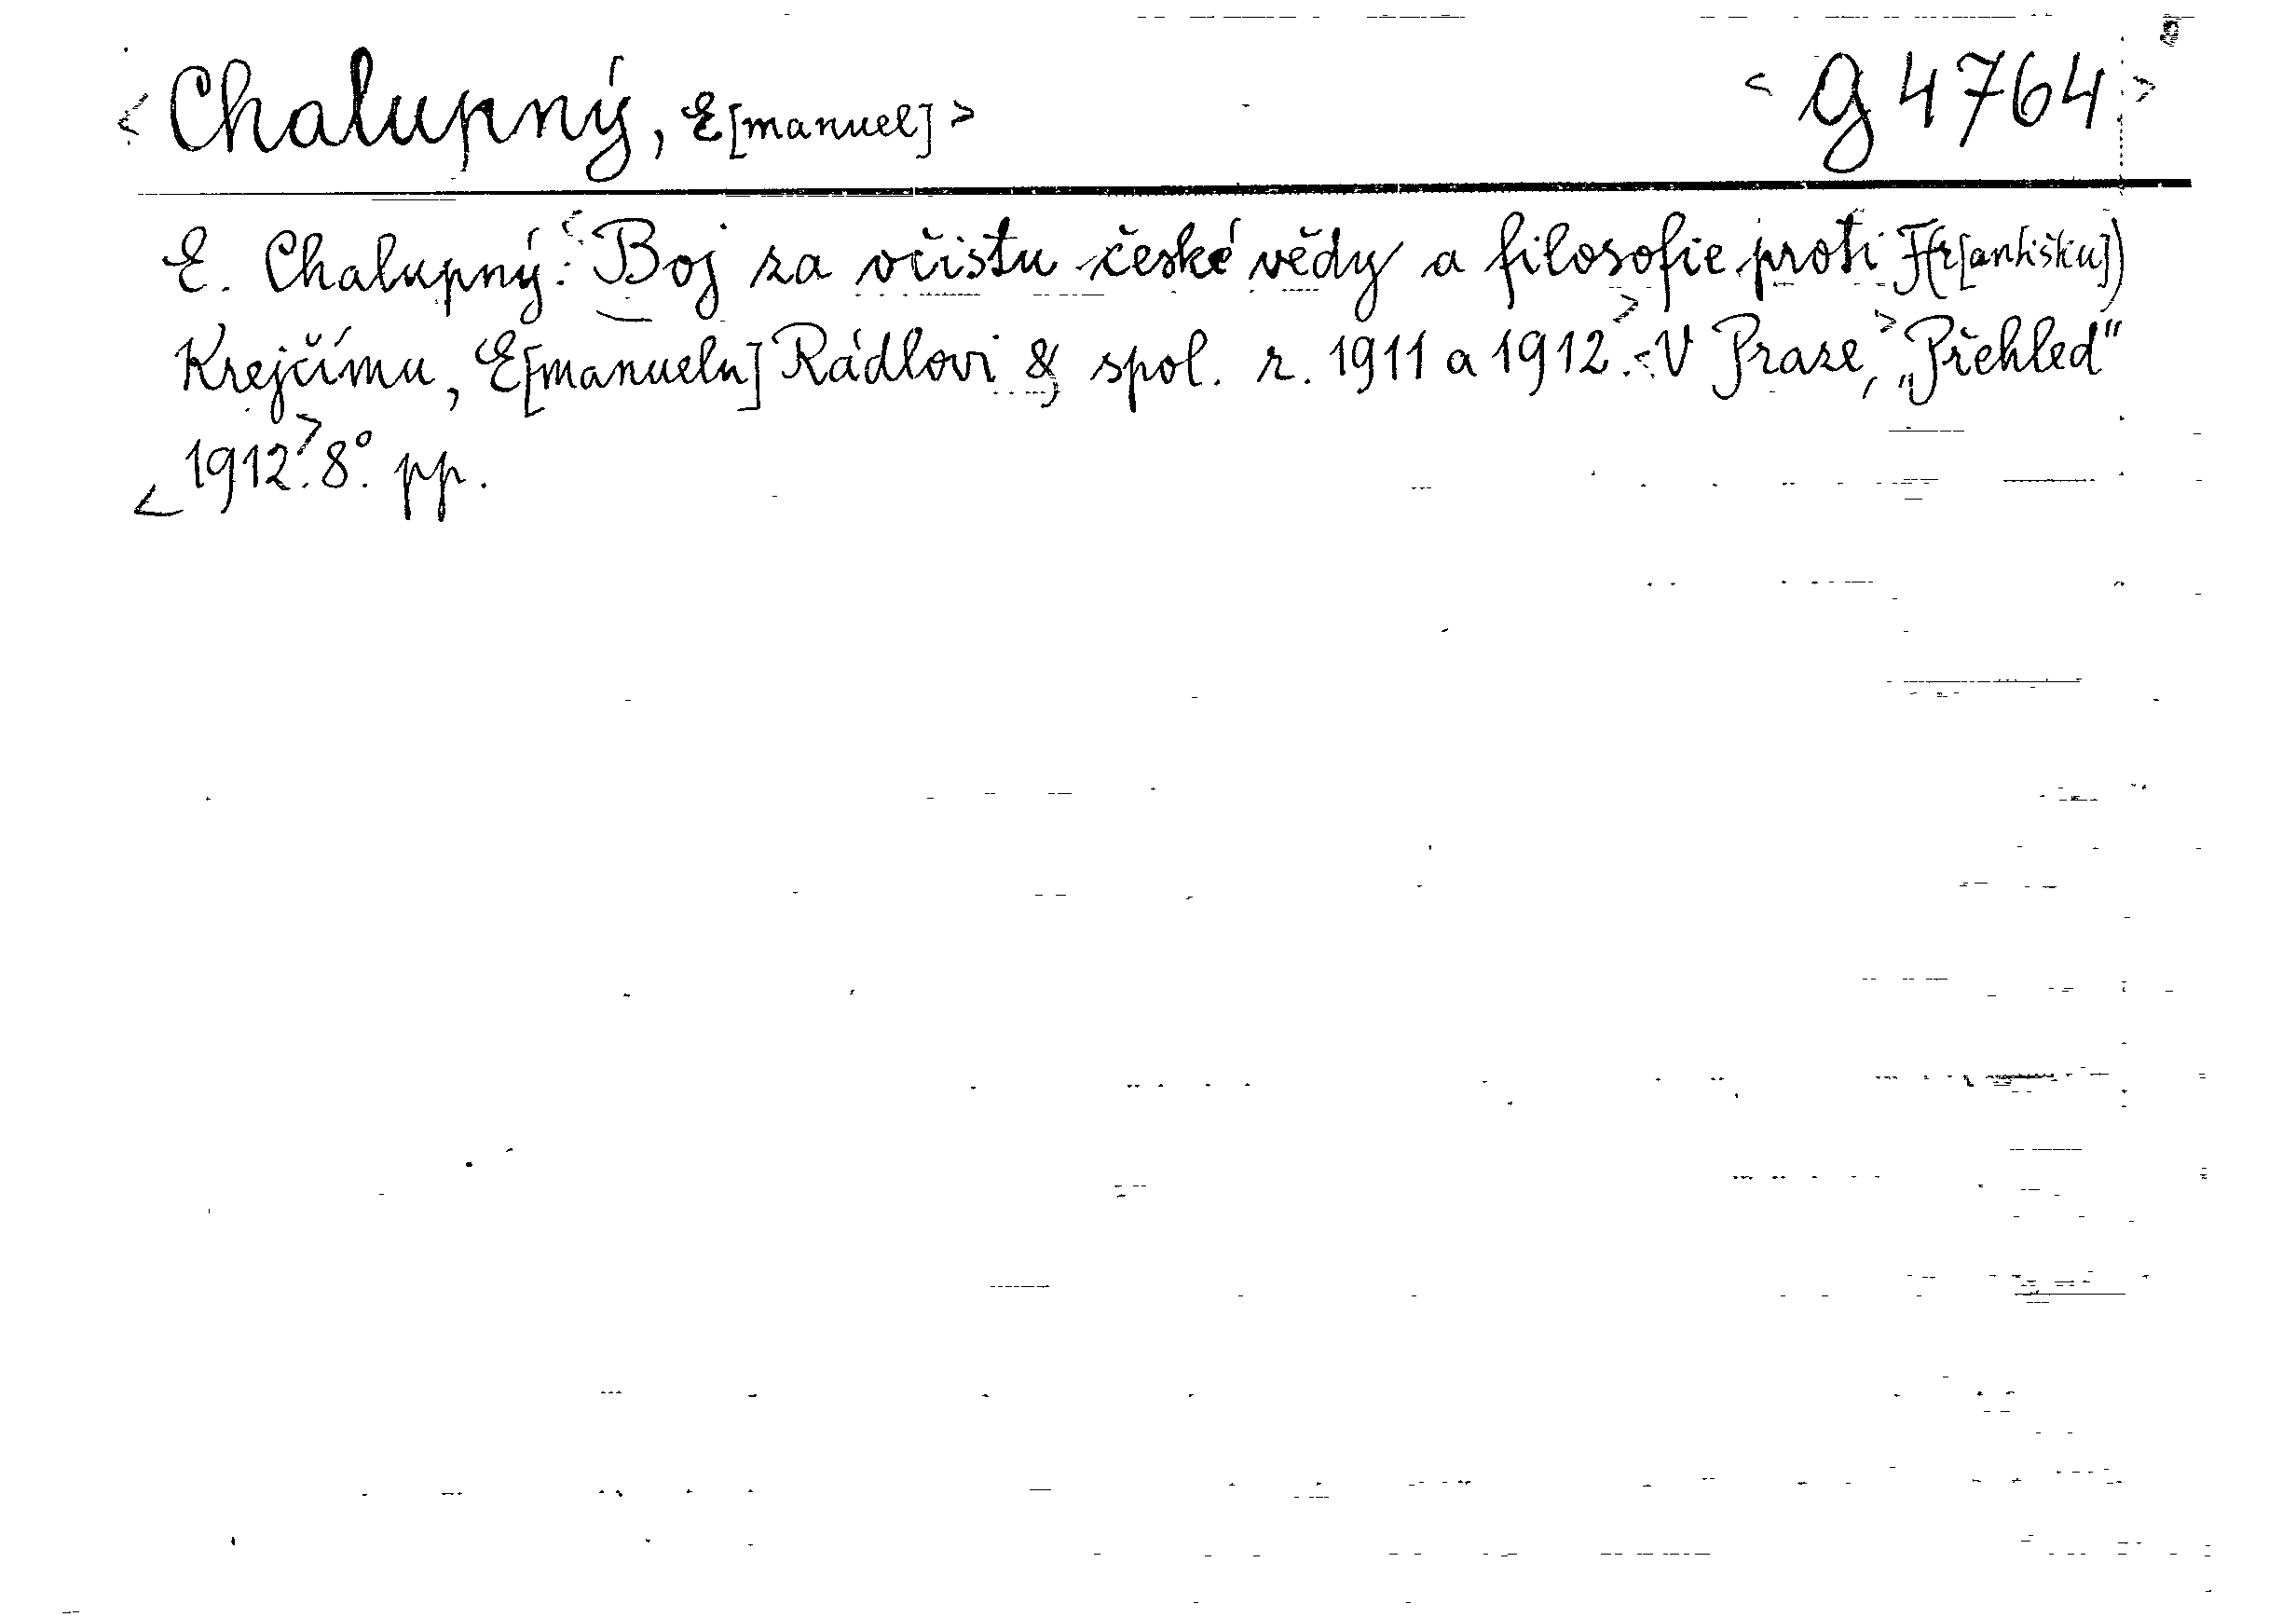 < Chalupný, E[manuel] > < g 4764 >
E. Chalupný: < Boj za očistu české vědy a filosofie proti F(r[antišku])
Krejčímu, E[manuelu] Rádlovi & spol. r. 1911 a 1912 >. < V Praze, > „Přehled"
< 1912 >. 8°. pp.